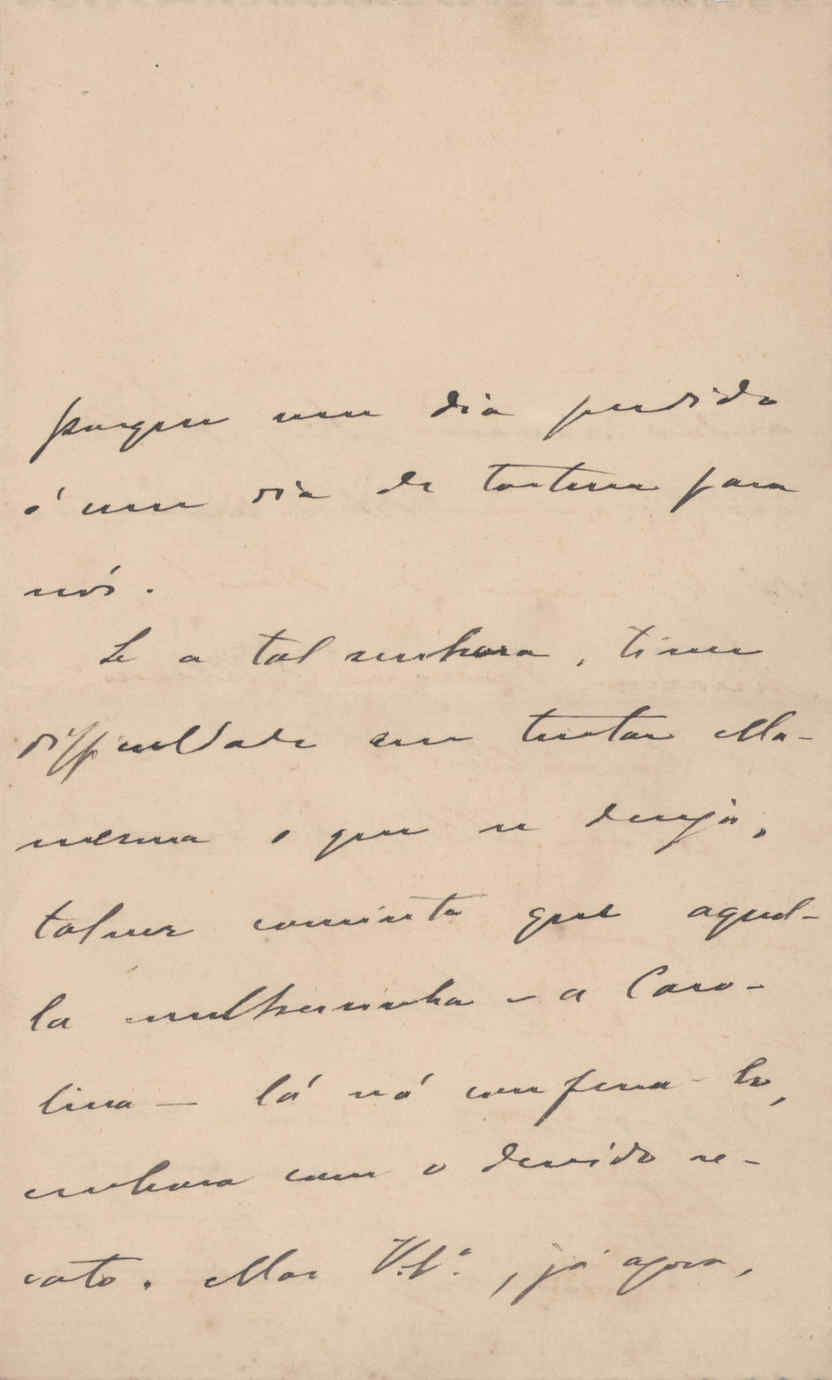 porque um dia perdido
é um dia de tortura para
nós.
Se a tal senhora, tiver
difficuldade em tratar ella
mesma o que se deseja,
talvez consinta que aquel-
la mulhersinha – a Caro-
lina — lá vá com fena-lo,
embora com o devido re-
cato. Mas V. Sª., já agora,